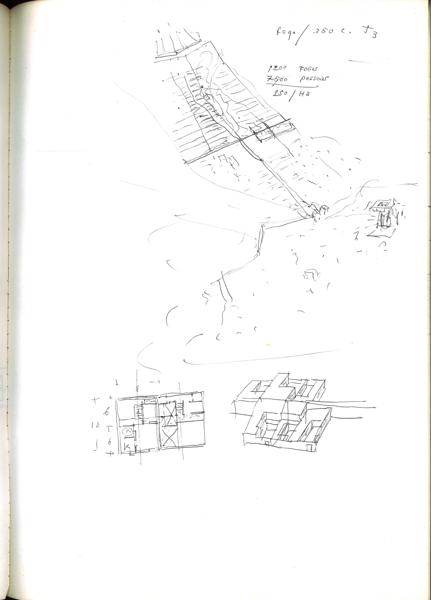 fogo / 250 C. T3
1200 fogos
7.500 pessoas
250 / Ha
6
12
6